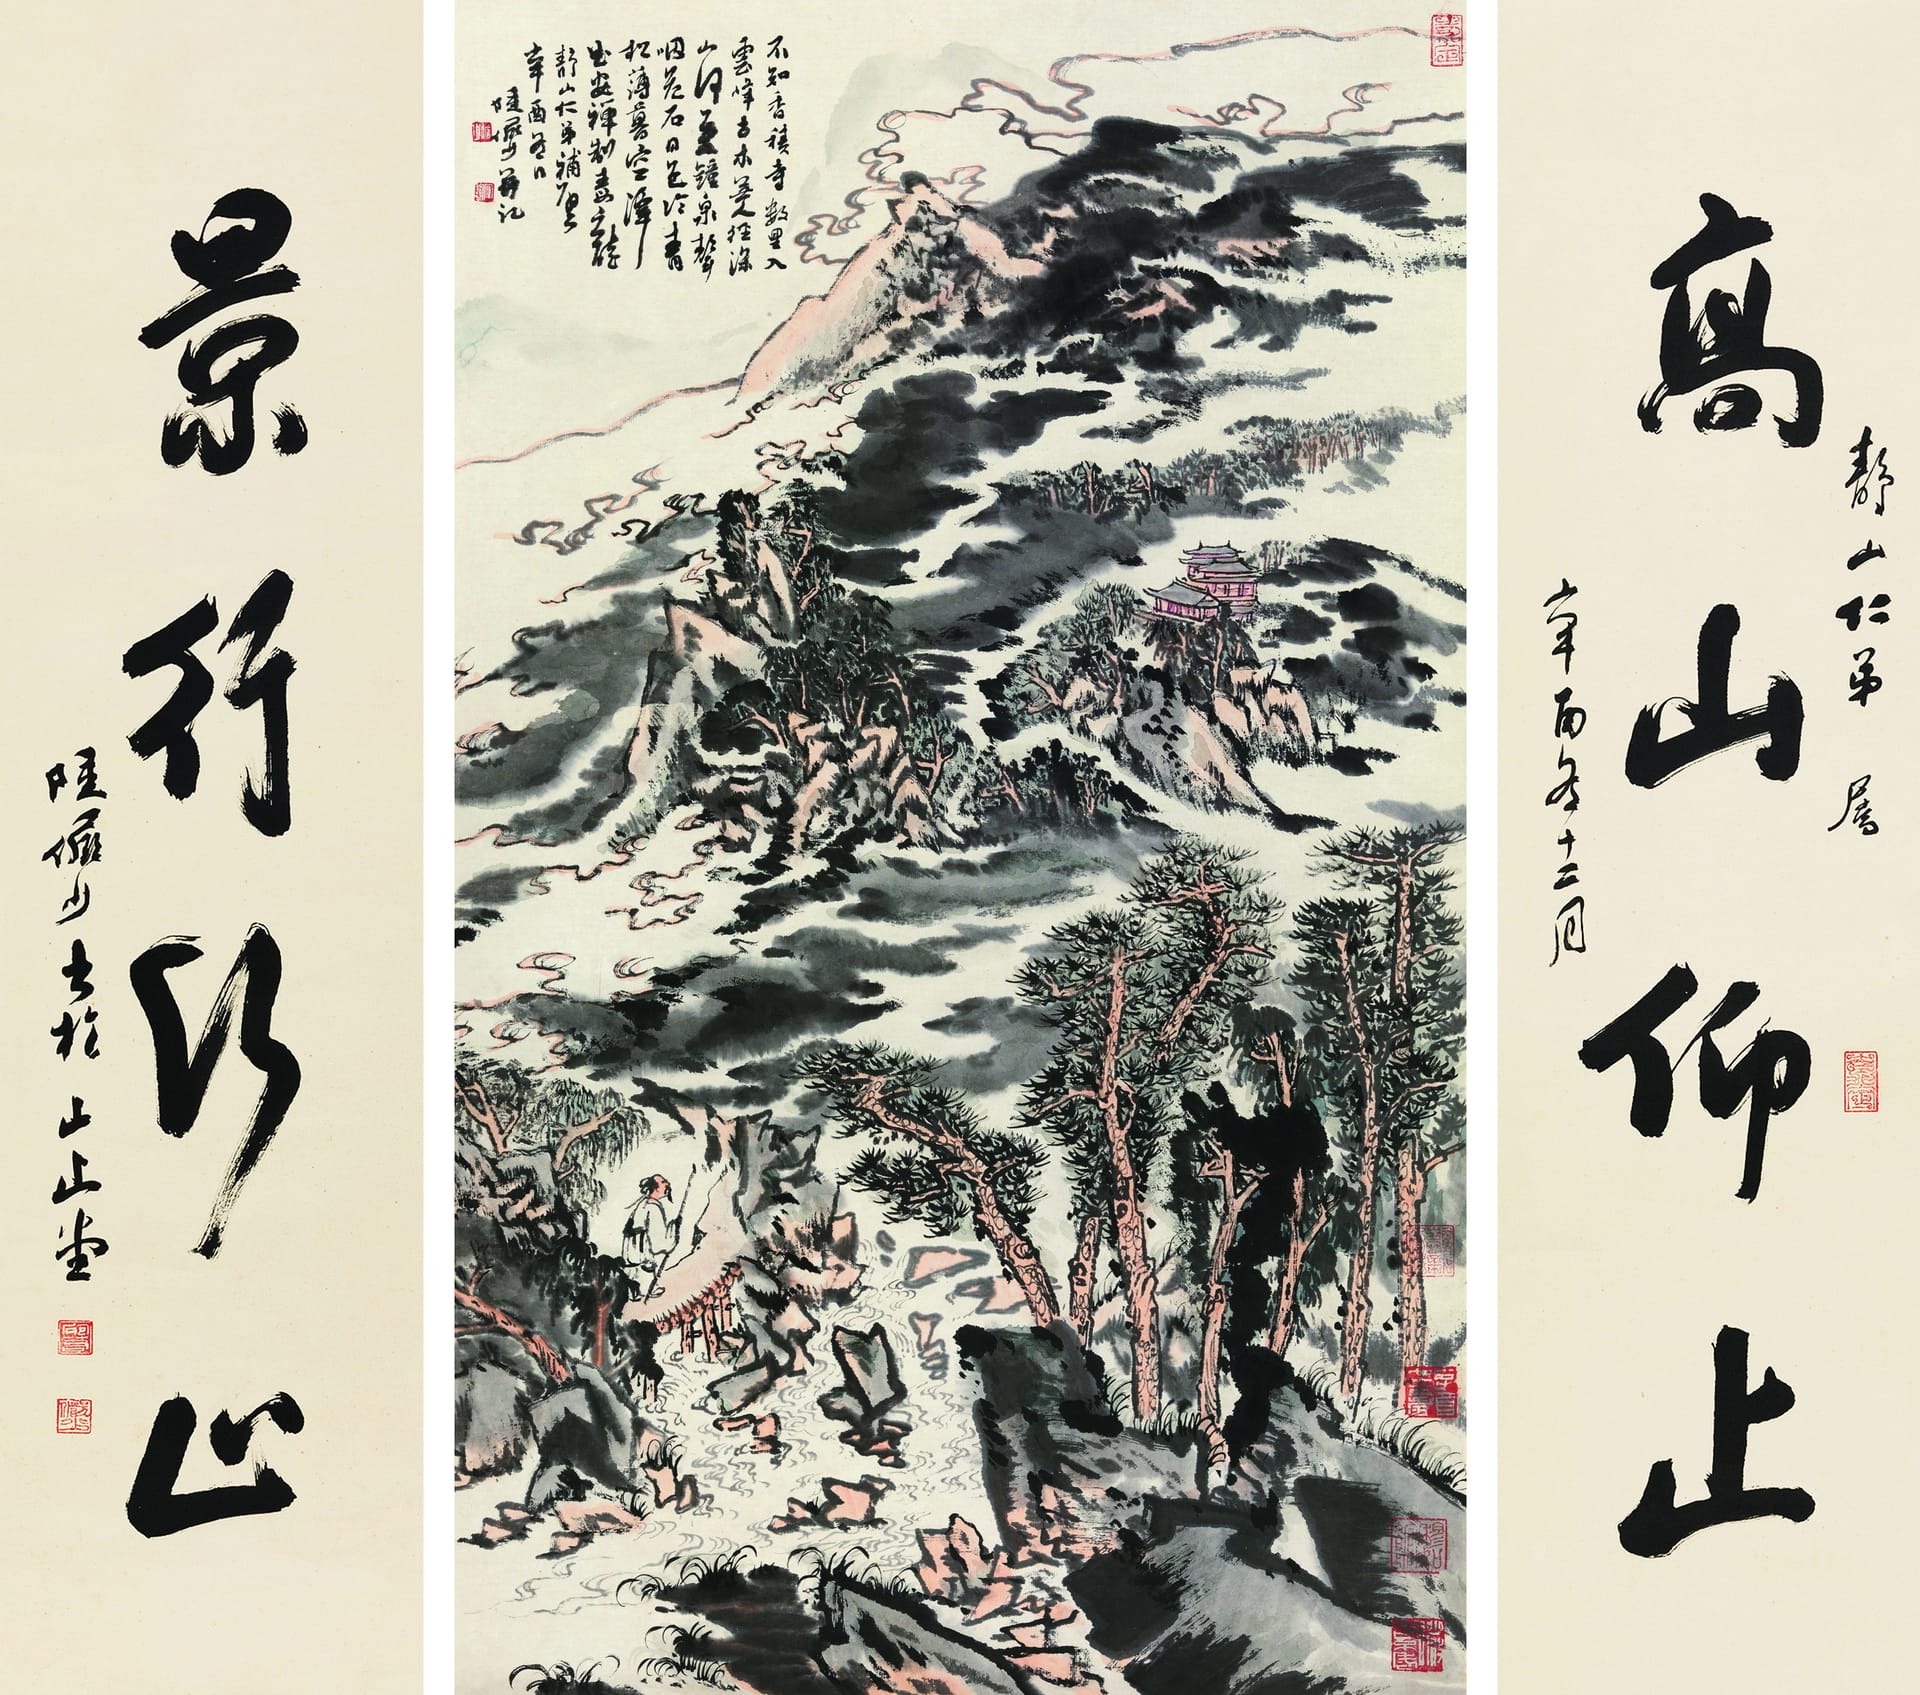 高山仰止
靜山仁弟 屬
辛酉冬十二月
不知香積寺數里入
雲峰古木無人徑深
山何處鐘泉聲
咽危石日色冷青
松薄暮空潭
曲安禪制毒龍
靜山仁弟補壁
辛酉冬日
陸儼少并記
景行行止
陸儼少書於止止堂